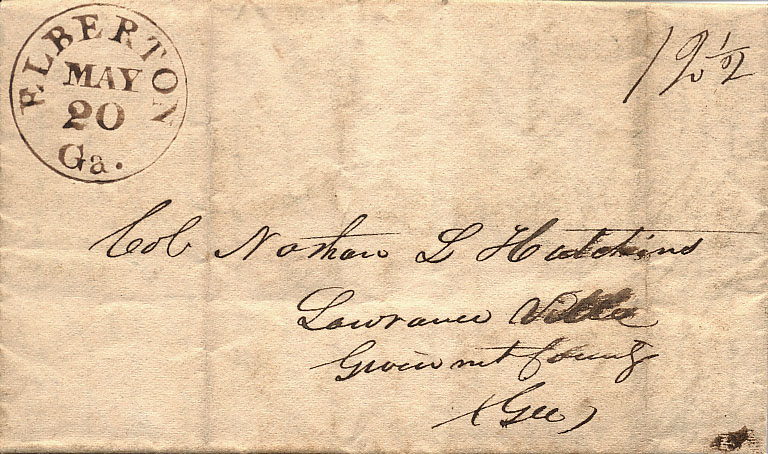 ELBERTON
MAY
20
Ga.
12½
Col Nathan L Hutchins
Lawrance Ville
Gwinnett County
(Geo)